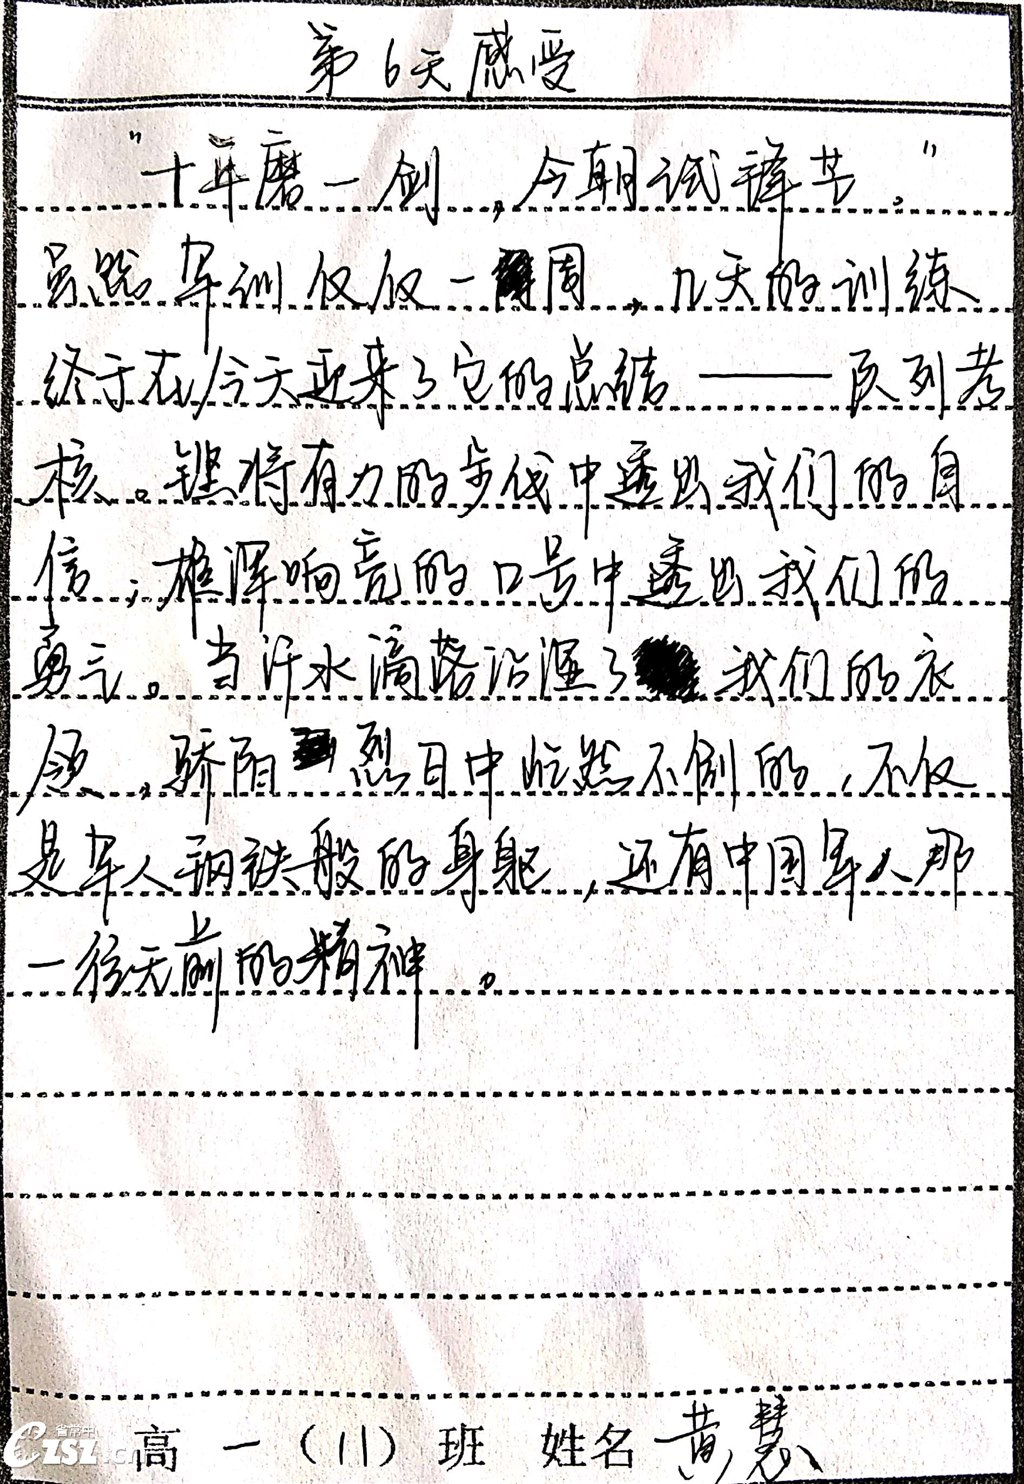 第6天感受
“十年磨一剑，今朝试锋芒。”
虽然军训仅仅一周，几天的训练
终于在今天迎来了它的总结——队列考
核。铿锵有力的步伐中透出我们的自
信；雄浑响亮的口号中透出我们的
勇气。当汗水滴落沾湿了我们的衣
领，骄阳烈日中屹然不倒的，不仅
是军人钢铁般的身躯，还有中国军人那
一往无前的精神。
高一（11）班 姓名 黄慧
省常中
CZSZ.cn